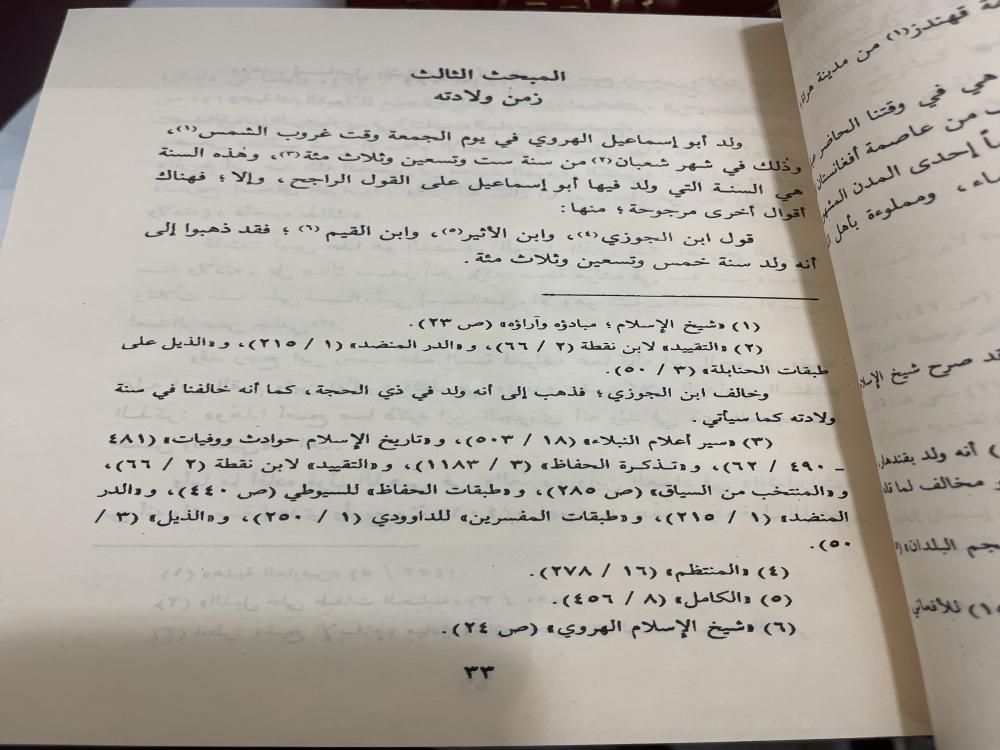 المبحث الثالث
زمن ولادته
ولد أبو إسماعيل الهروي في يوم الجمعة وقت غروب الشمس(١)،
وذلك في شهر شعبان(٢) من سنة ست وتسعين وثلاث مئة(٣)، وهذه السنة
هي السنة التي ولد فيها أبو إسماعيل على القول الراجح، وإلا؛ فهناك
أقوال أخرى مرجوحة؛ منها:
قول ابن الجوزي(٤)، وابن الأثير(٥)، وابن القيم(٦)؛ فقد ذهبوا إلى
أنه ولد سنة خمس وتسعين وثلاث مئة.
(١) «شيخ الإسلام؛ مبادؤه وآراؤه» (ص ٢٣).
(٢) «التقييد» لابن نقطة (٢ / ٦٦)، و«الدر المنضد» (١ / ٢١٥)، و«الذيل على
طبقات الحنابلة» (٣ / ٥٠).
وخالف ابن الجوزي؛ فذهب إلى أنه ولد في ذي الحجة، كما أنه خالفنا في سنة
ولادته كما سيأتي.
(٣) «سير أعلام النبلاء» (١٨ / ٥٠٣)، و«تاريخ الإسلام حوادث ووفيات» (٤٨١
ـ ٤٩٠ / ٦٢)، و«تذكرة الحفاظ» (٣ / ١١٨٣)، و«التقييد» لابن نقطة (٢ / ٦٦)،
و«المنتخب من السياق» (ص ٢٨٥)، و«طبقات الحفاظ» للسيوطي (ص ٤٤٠)، و«الدر
المنضد» (١ / ٢١٥)، و«طبقات المفسرين» للداوودي (١ / ٢٥٠)، و«الذيل» (٣ /
٥٠).
(٤) «المنتظم» (١٦ / ٢٧٨).
(٥) «الكامل» (٨ / ٤٥٦).
(٦) «شيخ الإسلام الهروي» (ص ٢٤).
٣٣
قهندز(١) من مدينة هراة
هي في وقتنا الحاضر
من عاصمة أفغانستان
إحدى المدن
ومملوءة بأهل
صرح شيخ
أنه ولد بقندهار
مخالف لما
البلدان»
للأفغاني